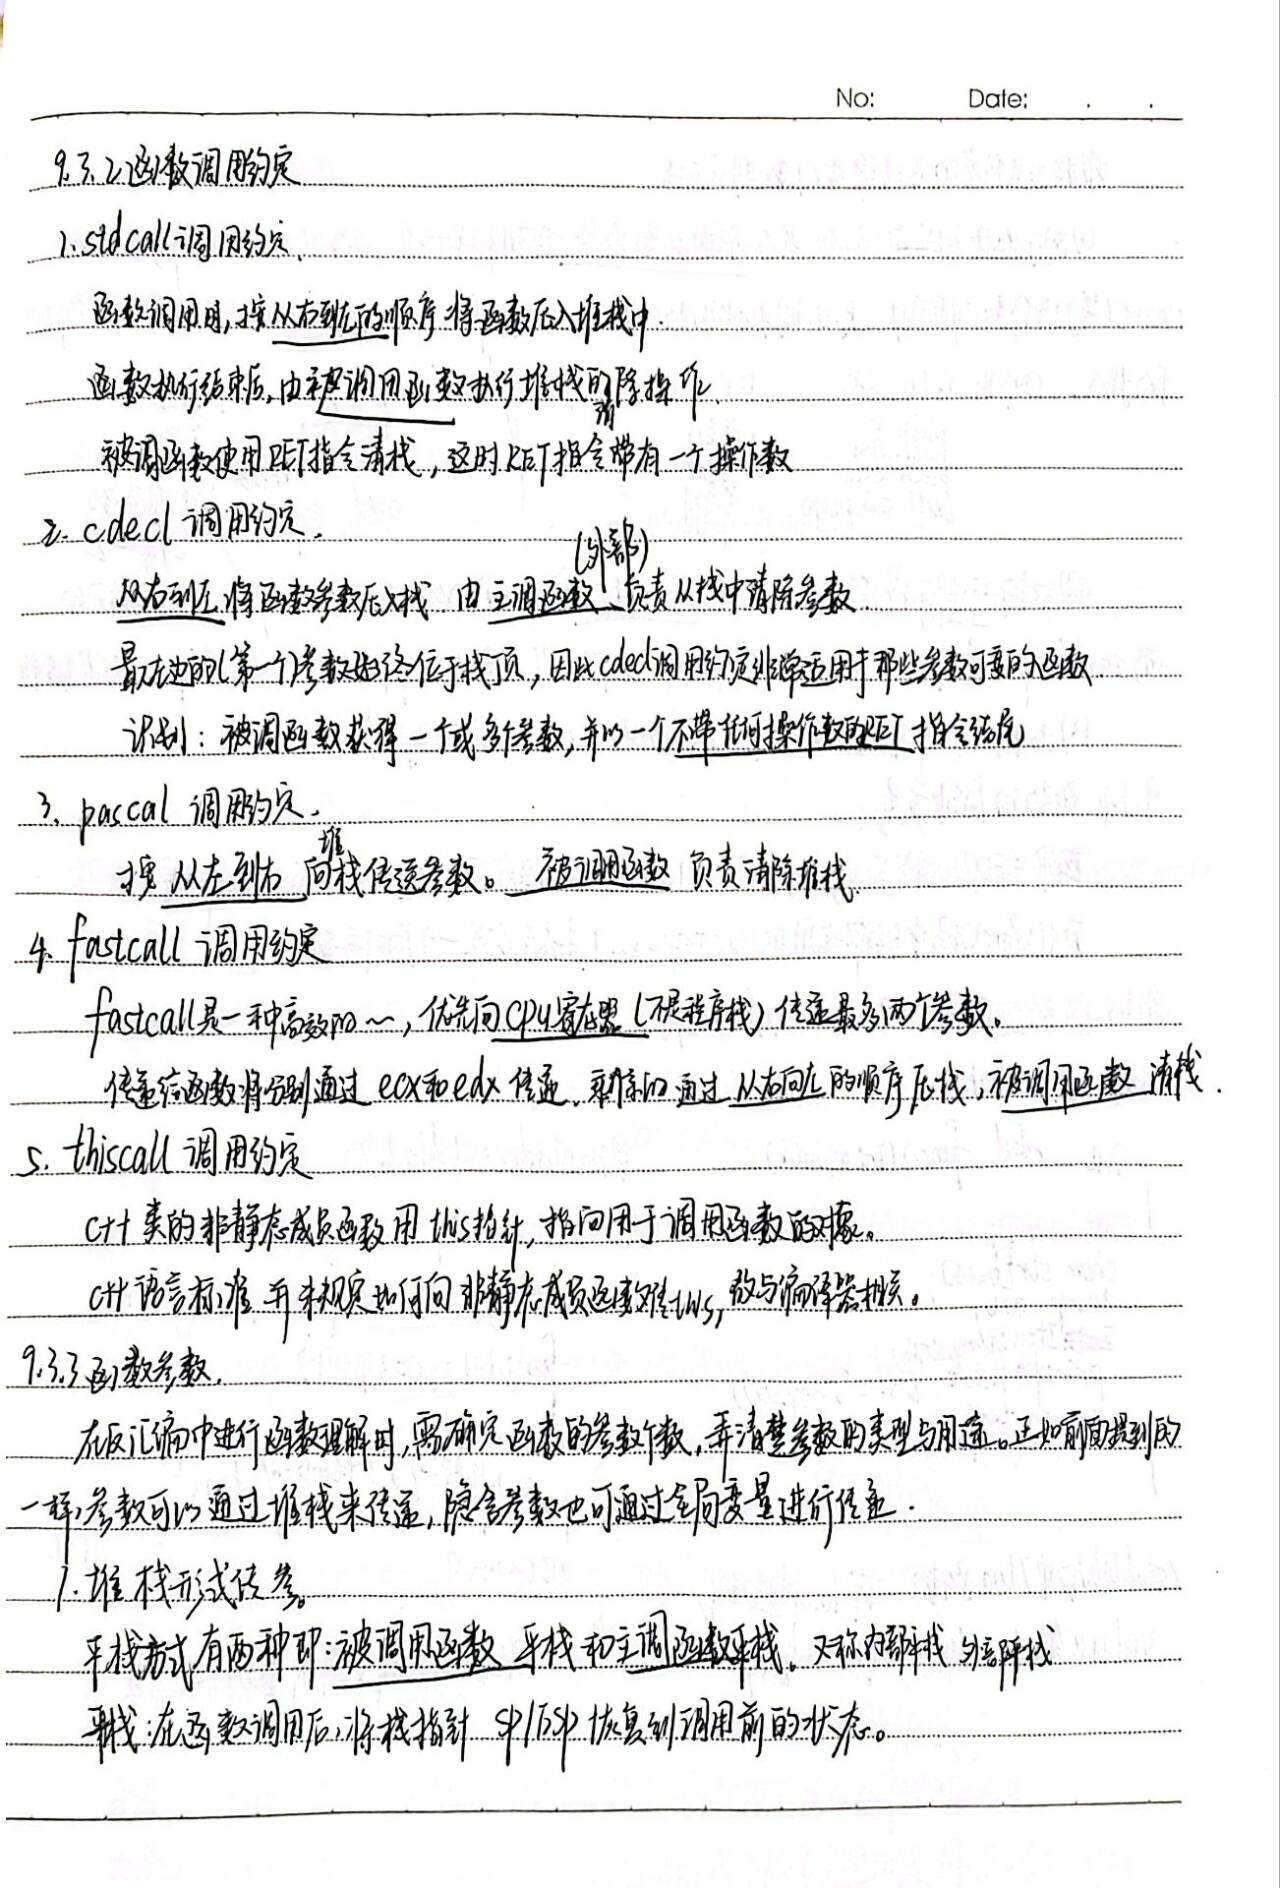 No: Date: . .
9.3.2 函数调用约定
1. stdcall 调用约定.
函数调用时,按从右到左的顺序将函数压入堆栈中.
函数执行结束后,由被调用函数执行堆栈的清除操作.
被调函数使用RET指令清栈,这时RET指令带有一个操作数
2. cdecl 调用约定.
从右到左将函数参数压入栈 由主调函数(外部)负责从栈中清除参数.
最左边的(第一个)参数始终位于栈顶,因此cdecl调用约定非常适用于那些参数可变的函数.
识别:被调函数获得一个或多个参数,并以一个不带任何操作数的RET指令结尾
3. pascal 调用约定.
按从左到右向堆栈传送参数。被调用函数负责清除堆栈.
4. fastcall 调用约定
fastcall是一种高效的~,优先向CPU寄存器(不是程序栈)传递最多两个参数。
传递给函数将分别通过ecx和edx传递.剩余的通过从右向左的顺序压栈,被调用函数清栈.
5. thiscall 调用约定
C++类的非静态成员函数用this指针,指向用于调用函数的对象。
C++语言标准并未规定如何向非静态成员函数传this,故与编译器相关。
9.3.3 函数参数.
在反汇编中进行函数理解时,需确定函数的参数个数,弄清楚参数的类型与用途。正如前面提到的
一样,参数可以通过堆栈来传递,隐含参数也可通过全局变量进行传递.
1. 堆栈形式传参。
平栈方式有两种即:被调用函数平栈和主调函数平栈。又称内部平栈 外部平栈
平栈:在函数调用后,将栈指针SP/ESP恢复到调用前的状态。